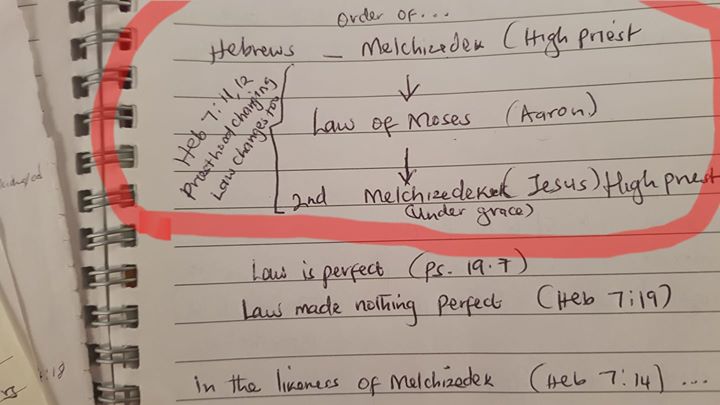 Order of...
Hebrews - Melchizedek (High priest
Heb 7:11,12
Priesthood changing
Law changes too
Law of Moses (Aaron)
2nd Melchizedek (Jesus) High priest
(under grace)
Law is perfect (Ps. 19.7)
Law made nothing perfect (Heb 7:19)
in the likeness of Melchizedek (Heb 7:14) ...
:18